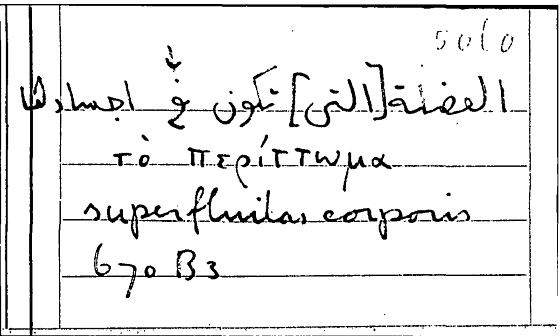 5010
الفضلة [التى] تكون فى اجسادها
τὸ περίττωμα
superfluitas corporis
670 B3